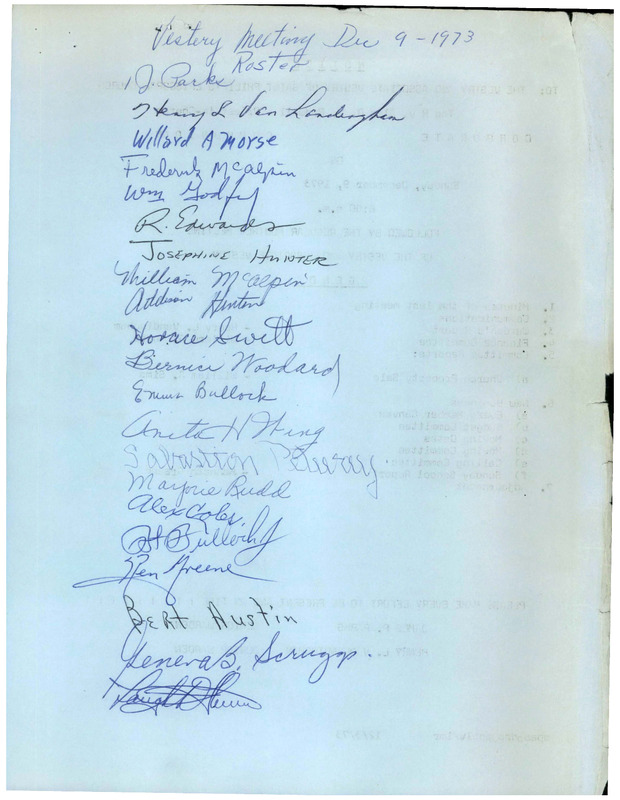 Vestery Meeting Dec 9-1973
Roster
J Parks
Henry L Van Landingham
Willard A Morse
Frederick McAlpin
Wm Godfry
R. Edwards
JOSEPHINE HUNTER
William McAlpin
Addison Hunter
Horace Switt
Bernice Woodard
Emma Bullock
Anita H King
Sabastion
Marjorie Budd
Alex Coles.
Bullock
Ken Greene
BERT AUSTIN
Geneva B. Scruggs.